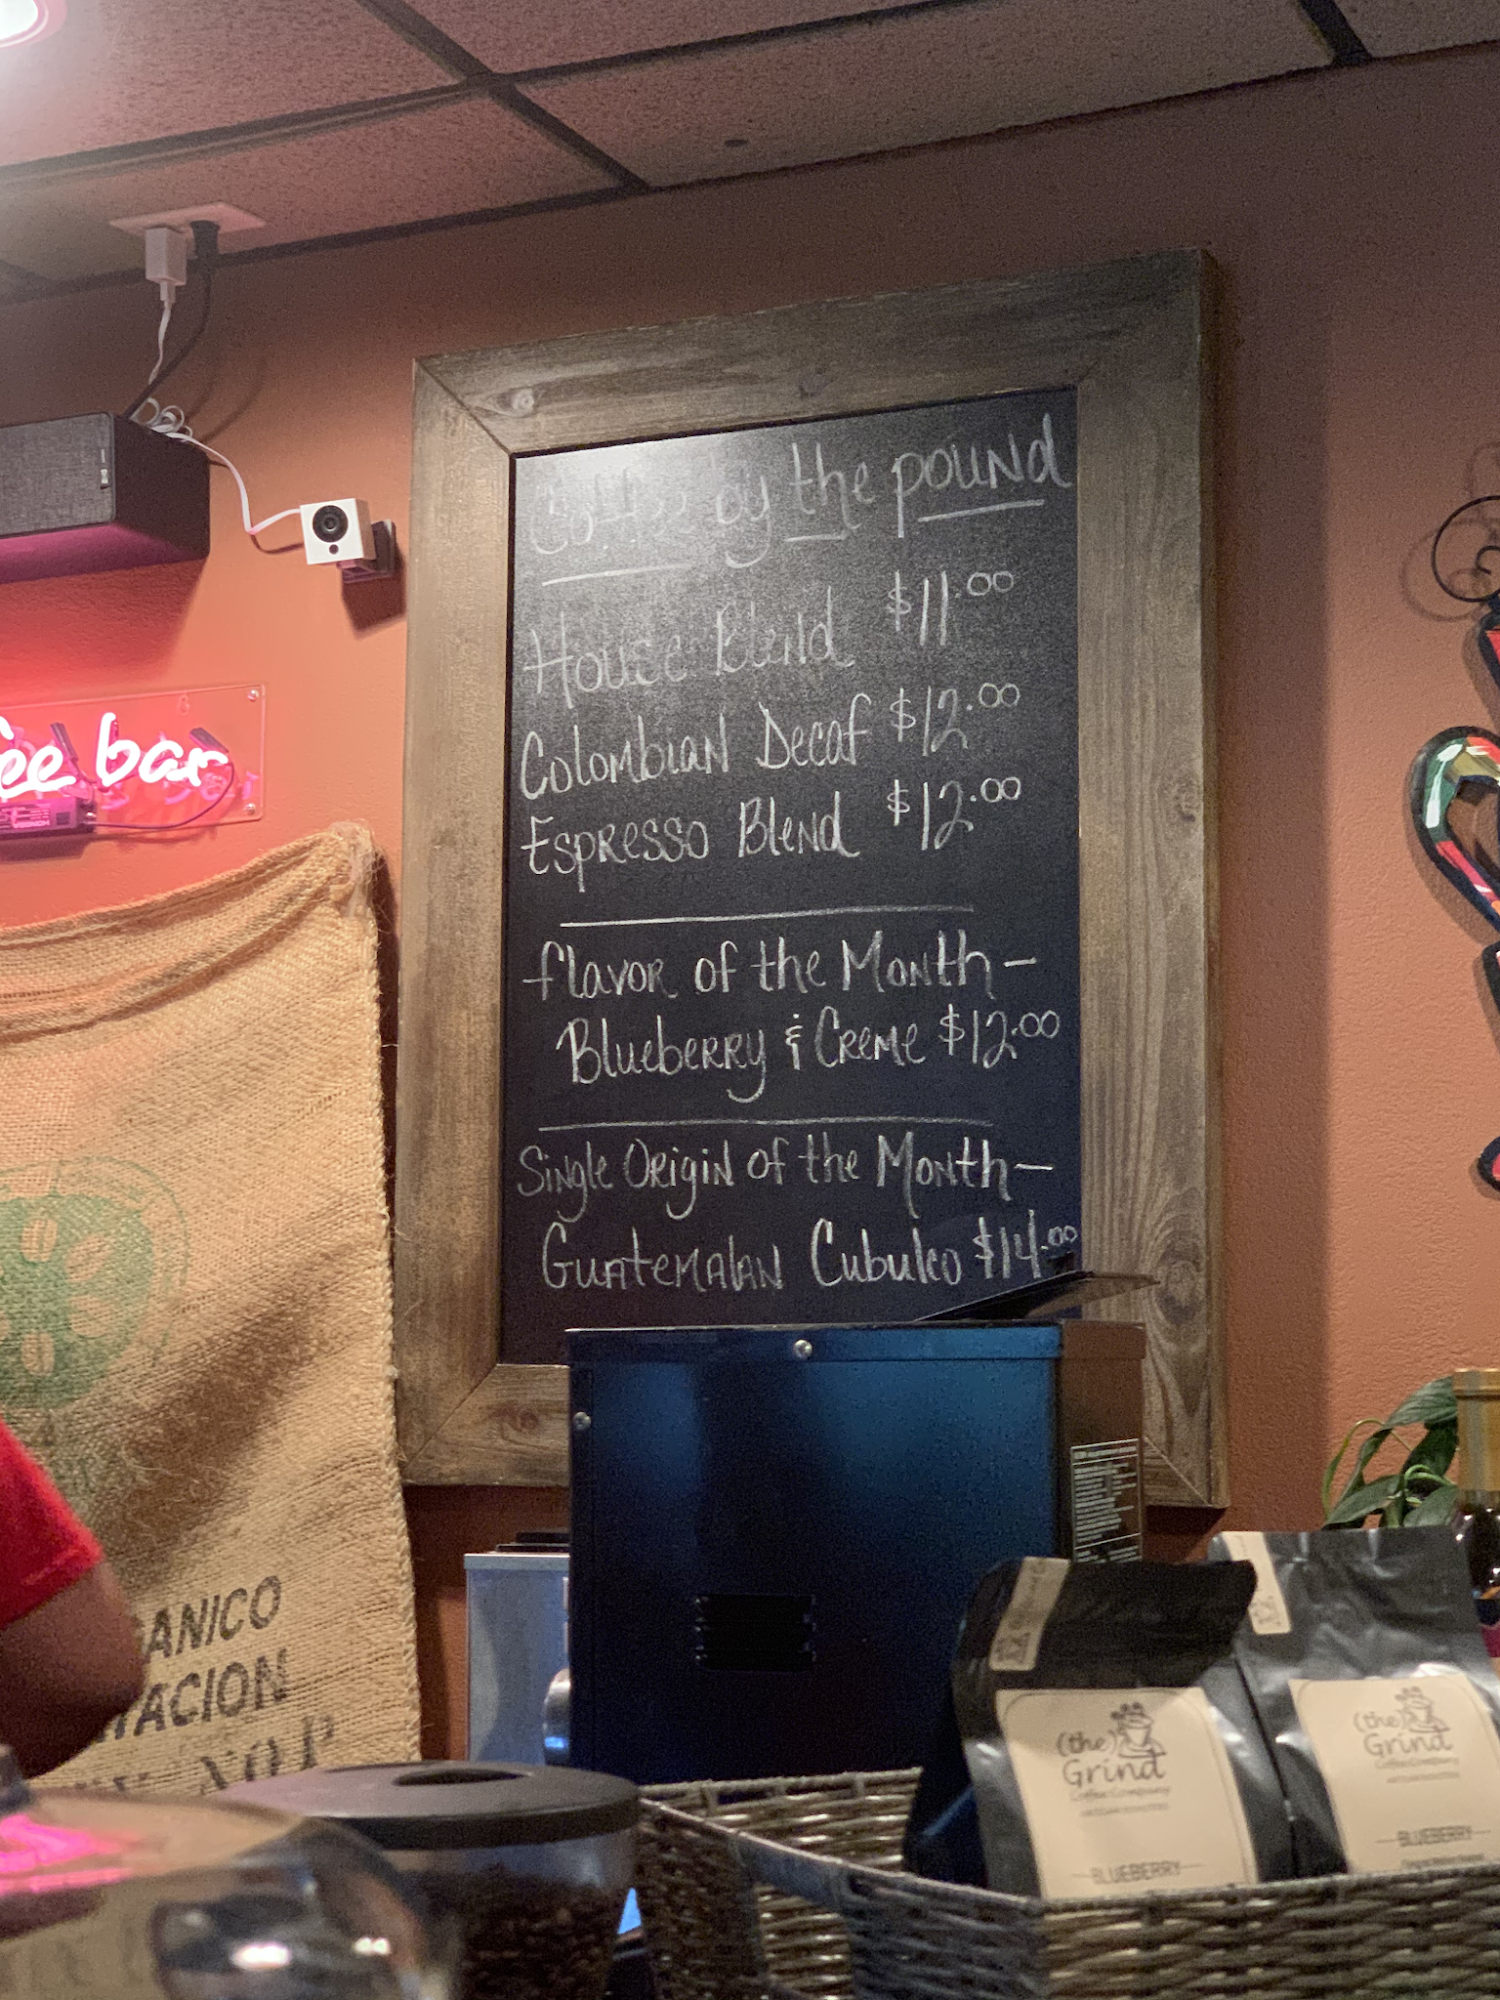 Coffee by the pound
House Blend $11.00
Colombian Decaf $12.00
Espresso Blend $12.00
Flavor of the Month —
Blueberry & Creme $12.00
Single Origin of the Month —
Guatemalan Cubulco $14.00
ee bar
ANICO
TACION
(the)
Grind
Coffee Company
BLUEBERRY
(the)
Grind
Coffee Company
BLUEBERRY